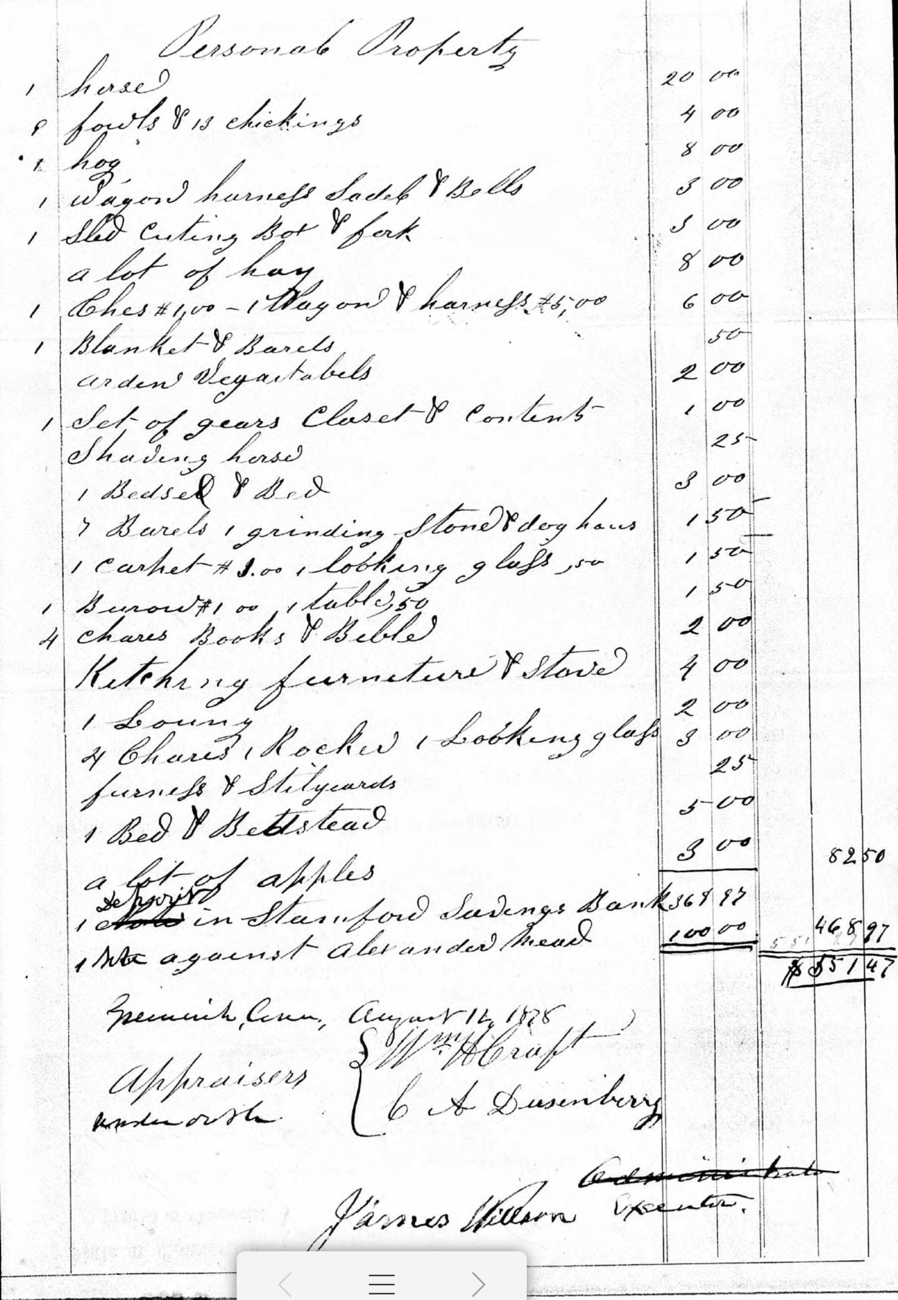 Personal Property
1 horse 20 00
8 fowls & 13 chickings 4 00
1 hog 8 00
1 Wagon harness Sadel & Bells 3 00
1 Sled Cuting Box & fork 3 00
a lot of hay 8 00
1 Ches #1,00 - 1 Wagon & harness #5,00 6 00
1 Blanket & Barels 50
arden Vegartabels 2 00
1 Set of gears Closet & Contents 1 00
Shaving horse 25
1 Bedsed & Bed 3 00
7 Barels 1 grinding Stone & dog haus 1 50
1 Carpet #1.00 1 looking glass ,50 1 50
1 Burow #1 00 1 table ,50 1 50
4 Chares Books & Bible 2 00
Kitchring furneture & Stove 4 00
1 Loung 2 00
4 Chares 1 Rocker 1 Looking glass 3 00
furness & Stilyards 25
1 Bed & Bettstead 5 00
a lot of apples 3 00 82 50
Deposit
1 Note in Stamford Savings Bank 368 97
1 Note against Alexander Mead 100 00 468 97
$551 47
Greenwich, Conn, August 12, 1878
Appraisers { Wm H Craft
under oath C A Dusenberry
Administrator
James Willson Executor.